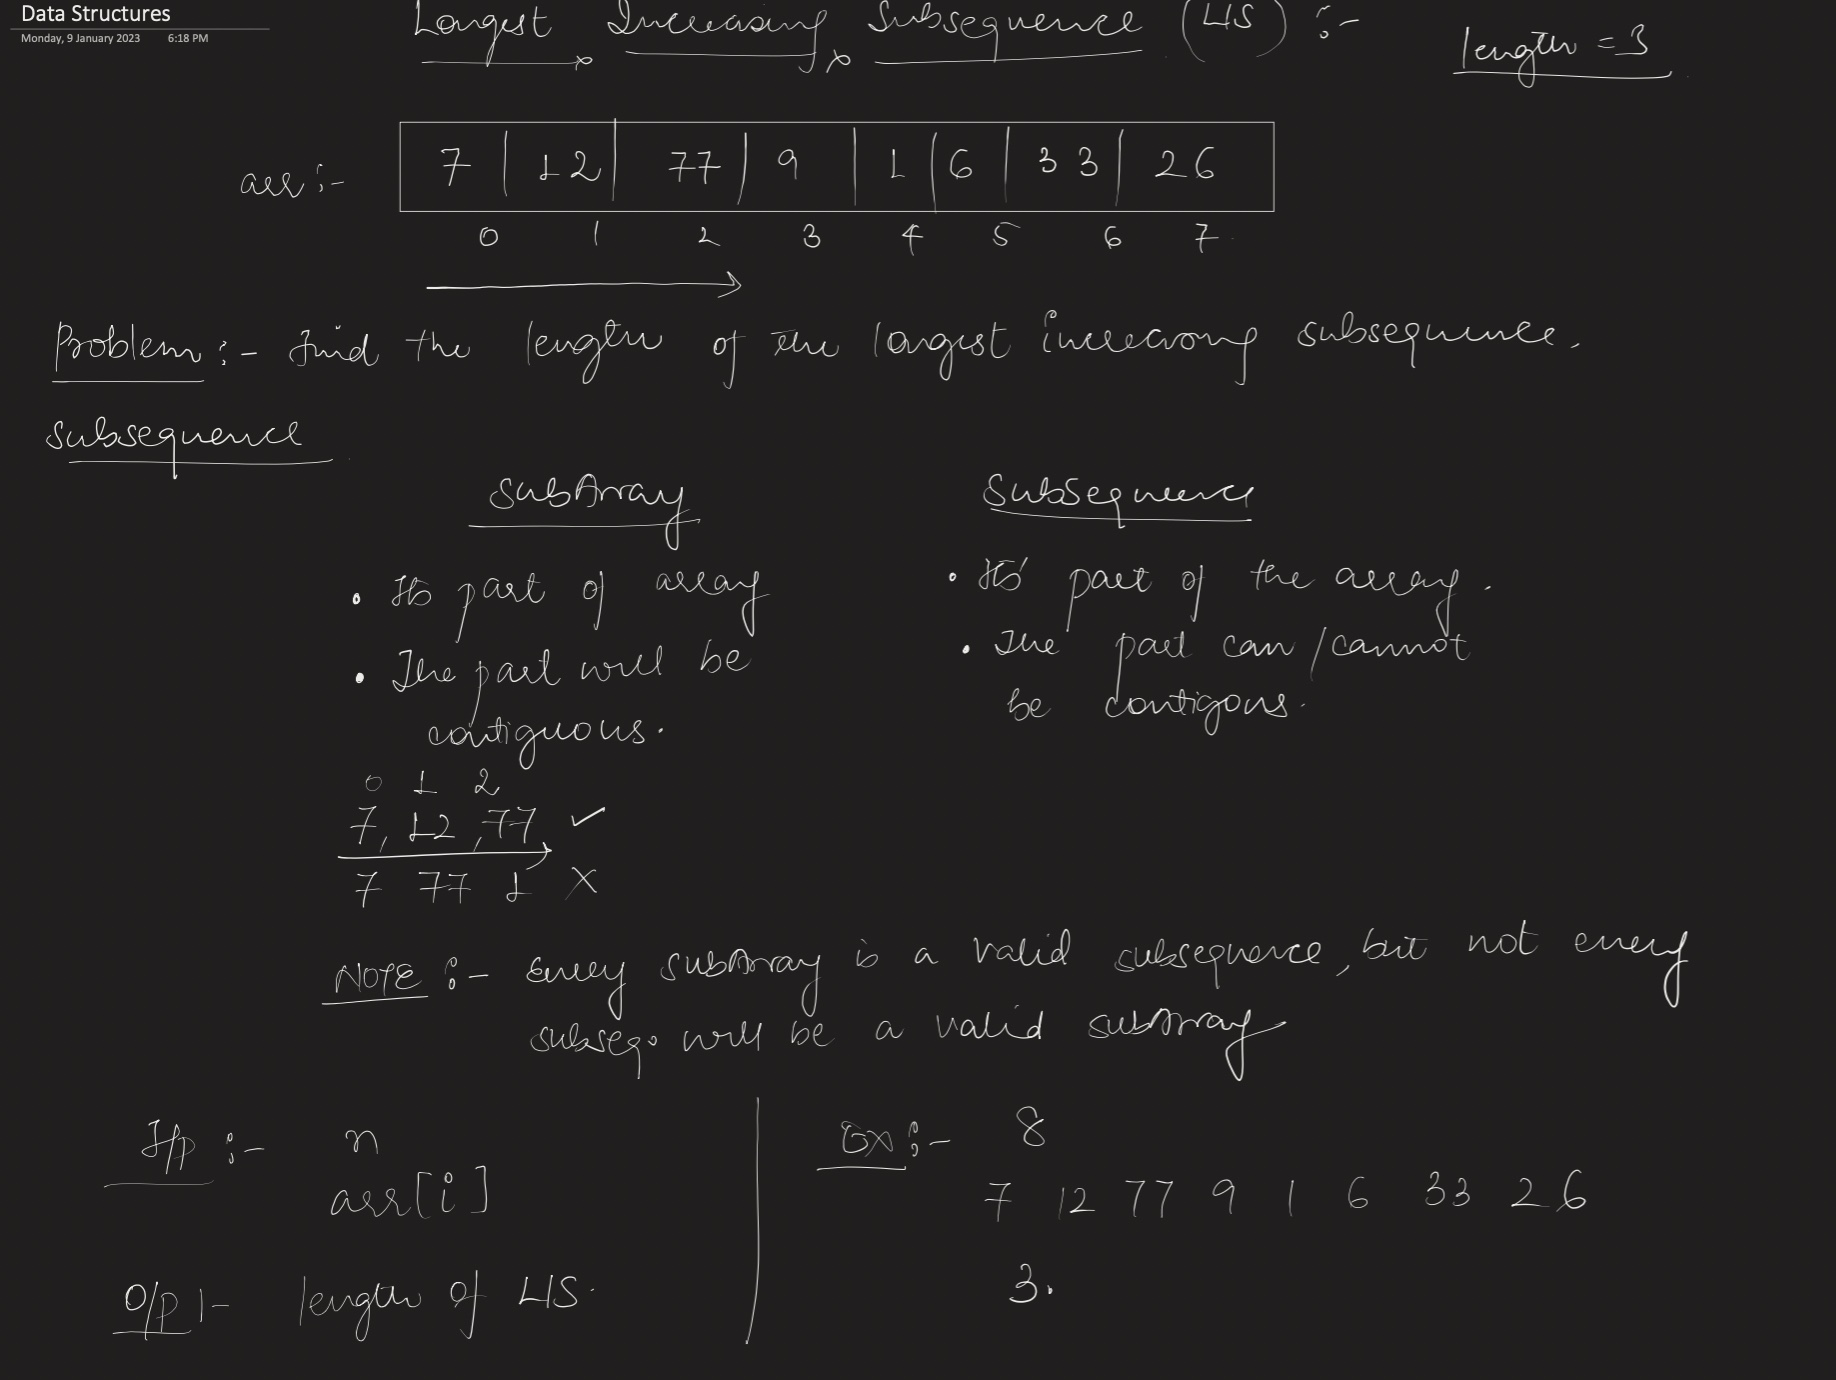 Data Structures
Monday, 9 January 2023 6:18 PM
Longest Increasing Subsequence (LIS) :-
length = 3
arr :- 7 | 12 | 77 | 9 | 1 | 6 | 33 | 26
0 1 2 3 4 5 6 7
Problem :- find the length of the longest increasing subsequence.
subsequence
subArray
Subsequence
• Its part of array
• The part will be
contiguous.
• Its' part of the array.
• The part can / cannot
be contigous.
0 1 2
7, 12, 77 ✓
7 77 1 X
NOTE :- Every subArray is a valid subsequence, but not every
subseq. will be a valid subArray
I/p :- n
arr[i]
O/p :- length of LIS.
Ex :- 8
7 12 77 9 1 6 33 26
3.